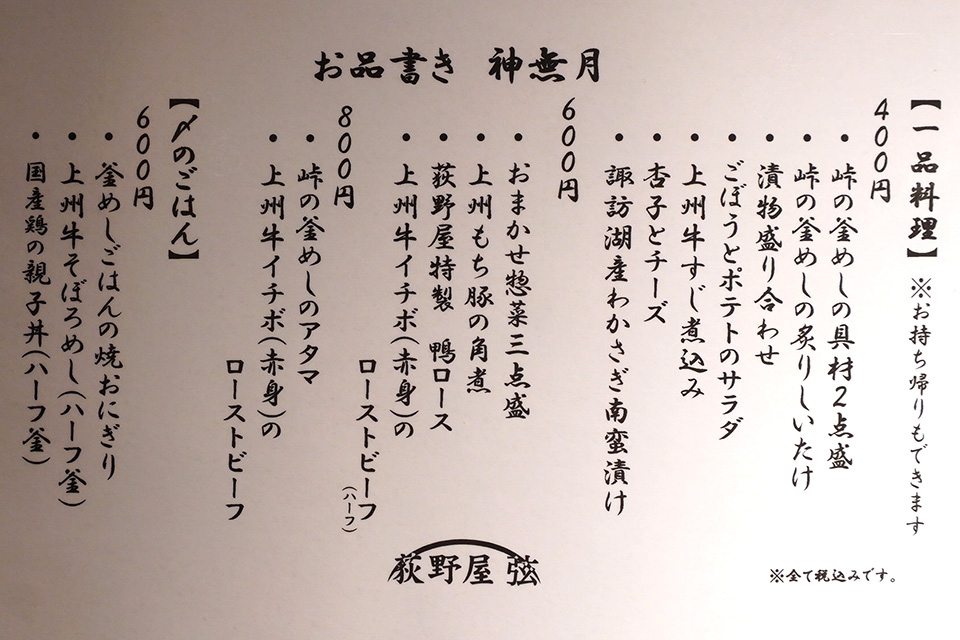 お品書き 神無月
【一品料理】※お持ち帰りもできます
400円
・峠の釜めしの具材2点盛
・峠の釜めしの炙りしいたけ
・漬物盛り合わせ
・ごぼうとポテトのサラダ
・上州牛すじ煮込み
・杏子とチーズ
・諏訪湖産わかさぎ南蛮漬け
600円
・おまかせ惣菜三点盛
・上州もち豚の角煮
・荻野屋特製 鴨ロース
・上州牛イチボ(赤身)の
ローストビーフ
(ハーフ)
800円
・峠の釜めしのアタマ
・上州牛イチボ(赤身)の
ローストビーフ
【〆のごはん】
600円
・釜めしごはんの焼おにぎり
・上州牛そぼろめし(ハーフ釜)
・国産鶏の親子丼(ハーフ釜)
荻野屋 弦
※全て税込みです。